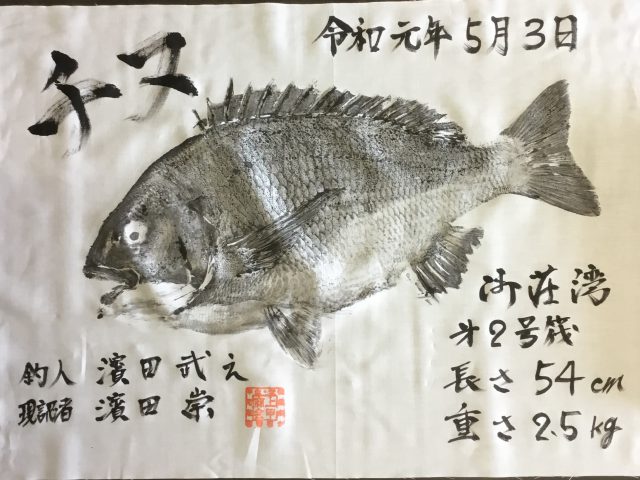 チヌ
令和元年5月3日
御荘湾
才2号筏
長さ54cm
重さ2.5kg
釣人 濱田武之
現認者 濱田崇